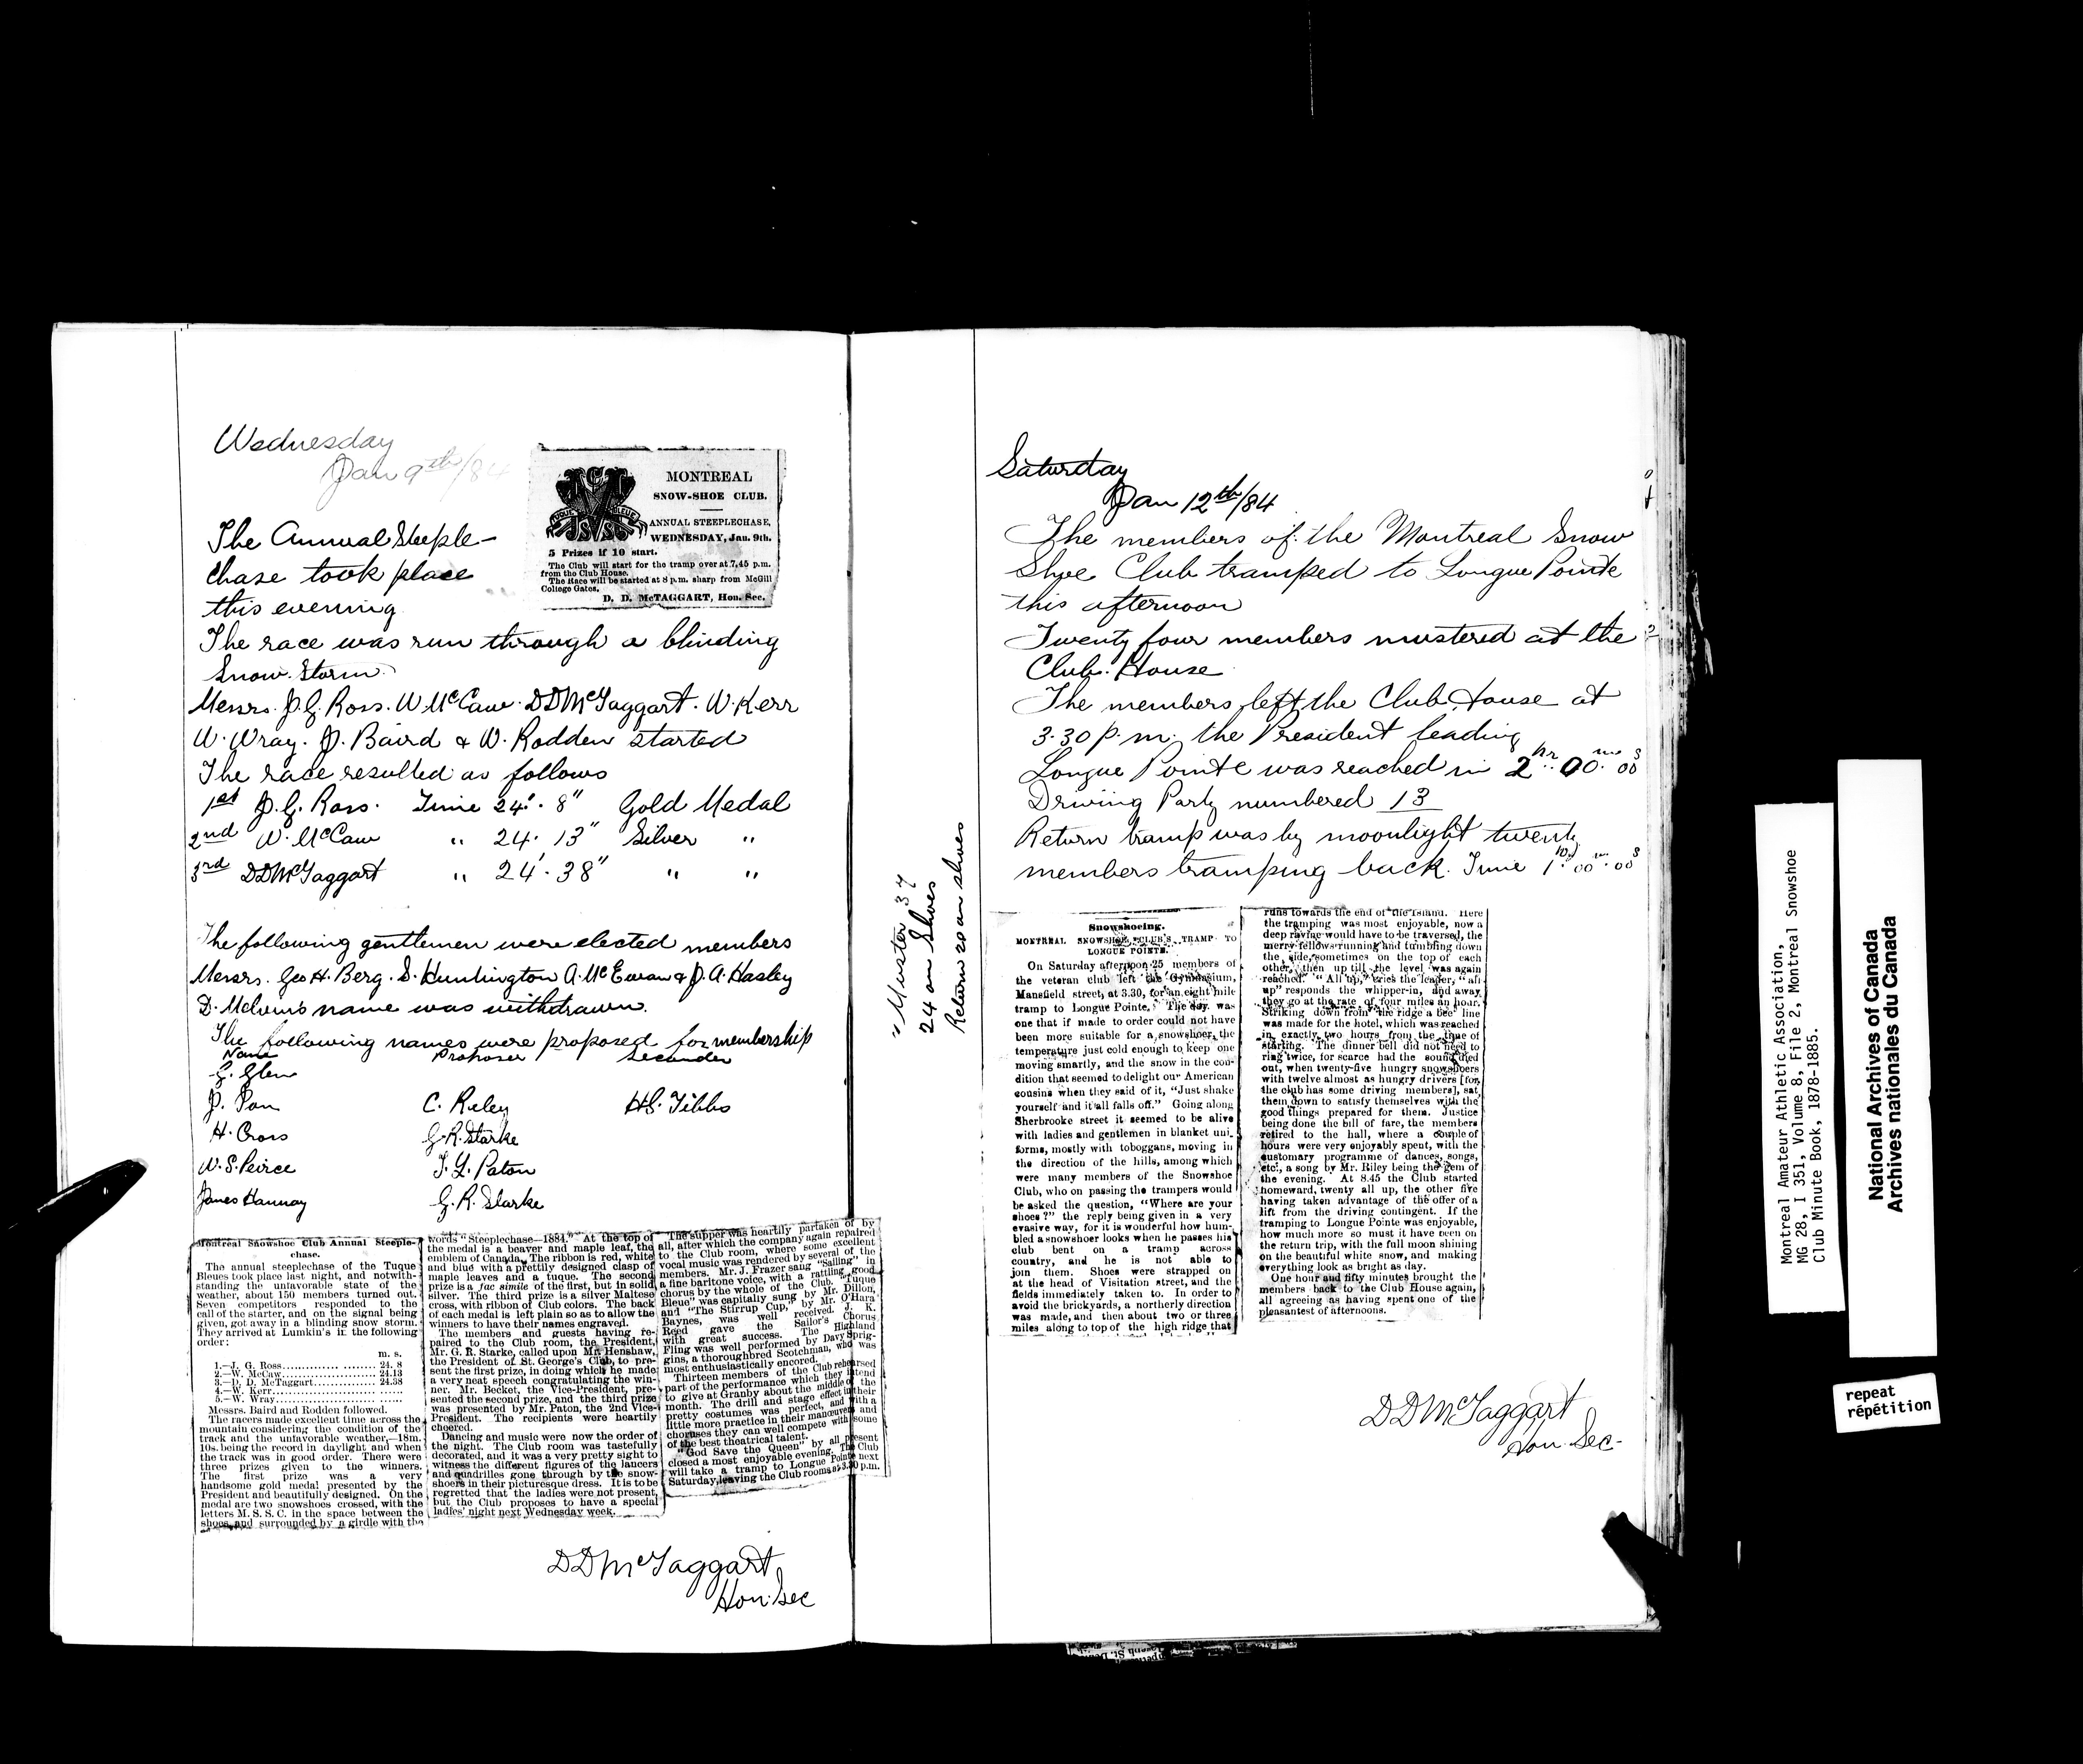 Wednesday
Jan 9th/84
MONTREAL
SNOW-SHOE CLUB.
TUQUE BLEUE
ANNUAL STEEPLECHASE,
WEDNESDAY, Jan. 9th.
5 Prizes if 10 start.
The Club will start for the tramp over at 7.45 p.m.
from the Club House.
The Race will be started at 8 p.m. sharp from McGill
College Gates.
D. D. McTAGGART, Hon. Sec.
The Annual Steeple-
chase took place
this evening
The race was run through a blinding
Snow. Storm.
Messrs. J.G. Ross. W McCaw. DDMcTaggart. W. Kerr
W. Wray. J. Baird & W. Rodden started
The race resulted as follows
1st J.G. Ross. Time 24'. 8" Gold Medal
2nd W. McCaw " 24. 13" Silver "
3rd DDMcTaggart " 24'. 38" " "
The following gentlemen were elected members
Messrs. Geo H. Berg. S. Huntington A. McEwan & J. A. Hasley
D. Melvin's name was withdrawn.
The following names were proposed for membership
Name Proposer Seconder
G. Glen
J. Pan C. Riley H.S. Tibbs
H. Cross G.R. Starke
W. S. Peirce T. L. Paton
James Hannay G. R. Starke
Montreal Snowshoe Club Annual Steeple-
chase.
The annual steeplechase of the Tuque
Bleues took place last night, and notwith-
standing the unfavorable state of the
weather, about 150 members turned out.
Seven competitors responded to the
call of the starter, and on the signal being
given, got away in a blinding snow storm.
They arrived at Lumkin's in the following
order:
m. s.
1.—J. G. Ross.................... 24. 8
2.—W. McCaw.................... 24.13
3.—D. D. McTaggart.............. 24.38
4.—W. Kerr....................
5.—W. Wray....................
Messrs. Baird and Rodden followed.
The racers made excellent time across the
mountain considering the condition of the
track and the unfavorable weather,—18m.
10s. being the record in daylight and when
the track was in good order. There were
three prizes given to the winners.
The first prize was a very
handsome gold medal presented by the
President and beautifully designed. On the
medal are two snowshoes crossed, with the
letters M. S. S. C. in the space between the
shoes and surrounded by a girdle with the
words "Steeplechase—1884." At the top of
the medal is a beaver and maple leaf, the
emblem of Canada. The ribbon is red, white
and blue with a prettily designed clasp of
maple leaves and a tuque. The second
prize is a fac simile of the first, but in solid
silver. The third prize is a silver Maltese
cross, with ribbon of Club colors. The back
of each medal is left plain so as to allow the
winners to have their names engraved.
The members and guests having re-
paired to the Club room, the President,
Mr. G. R. Starke, called upon Mr. Henshaw,
the President of St. George's Club, to pre-
sent the first prize, in doing which he made
a very neat speech congratulating the win-
ner. Mr. Becket, the Vice-President, pre-
sented the second prize, and the third prize
was presented by Mr. Paton, the 2nd Vice-
President. The recipients were heartily
cheered.
Dancing and music were now the order of
the night. The Club room was tastefully
decorated, and it was a very pretty sight to
witness the different figures of the lancers
and quadrilles gone through by the snow-
shoers in their picturesque dress. It is to be
regretted that the ladies were not present,
but the Club proposes to have a special
ladies' night next Wednesday week.
The supper was heartily partaken of by
all, after which the company again repaired
to the Club room, where some excellent
vocal music was rendered by several of the
members. Mr. J. Frazer sang "Sailing" in
a fine baritone voice, with a rattling good
chorus by the whole of the Club. "Tuque
Bleue" was capitally sung by Mr. Dillon,
and "The Stirrup Cup," by Mr. O'Hara
Baynes, was well received. J. K.
Reed gave the Sailor's Chorus
with great success. The Highland
Fling was well performed by Davy Sprig-
gins, a thoroughbred Scotchman, who was
most enthusiastically encored.
Thirteen members of the Club rehearsed
part of the performance which they intend
to give at Granby about the middle of the
month. The drill and stage effect in their
pretty costumes was perfect, and with a
little more practice in their manœuvers and
choruses they can well compete with some
of the best theatrical talent.
"God Save the Queen" by all present
closed a most enjoyable evening. The Club
will take a tramp to Longue Pointe next
Saturday, leaving the Club rooms at 3.30 p.m.
DDMcTaggart
Hon. Sec
"Muster 37
24 on Shoes
Return 20 on shoes
Saturday
Jan 12th/84
The members of the Montreal Snow
Shoe Club tramped to Longue Pointe
this afternoon
Twenty four members mustered at the
Club. House
The members left the Club House at
3.30 p.m. the President leading
Longue Pointe was reached in 2hr. 00m. 00s
Driving Party numbered 13
Return tramp was by moonlight twenty
members tramping back. Time 1hr. 00m. 00s
Snowshoeing.
MONTREAL SNOWSHOE CLUB'S TRAMP TO
LONGUE POINTE.
On Saturday afternoon 25 members of
the veteran club left the Gymnasium,
Mansfield street, at 3.30, for an eight mile
tramp to Longue Pointe. The day was
one that if made to order could not have
been more suitable for a snowshoer, the
temperature just cold enough to keep one
moving smartly, and the snow in the con-
dition that seemed to delight our American
cousins when they said of it, "Just shake
yourself and it all falls off." Going along
Sherbrooke street it seemed to be alive
with ladies and gentlemen in blanket uni-
forms, mostly with toboggans, moving in
the direction of the hills, among which
were many members of the Snowshoe
Club, who on passing the trampers would
be asked the question, "Where are your
shoes?" the reply being given in a very
evasive way, for it is wonderful how hum-
bled a snowshoer looks when he passes his
club bent on a tramp across
country, and he is not able to
join them. Shoes were strapped on
at the head of Visitation street, and the
fields immediately taken to. In order to
avoid the brickyards, a northerly direction
was made, and then about two or three
miles along to top of the high ridge that
runs towards the end of the Island. Here
the tramping was most enjoyable, now a
deep ravine would have to be traversed, the
merry fellows running and tumbling down
the side, sometimes on the top of each
other, then up till the level was again
reached. "All up," cries the leader, "all
up" responds the whipper-in, and away
they go at the rate of four miles an hour.
Striking down from the ridge a bee line
was made for the hotel, which was reached
in exactly two hours from the time of
starting. The dinner bell did not need to
ring twice, for scarce had the sound died
out, when twenty-five hungry snowshoers
with twelve almost as hungry drivers [for
the club has some driving members], sat
them down to satisfy themselves with the
good things prepared for them. Justice
being done the bill of fare, the members
retired to the hall, where a couple of
hours were very enjoyably spent, with the
customary programme of dances, songs,
etc., a song by Mr. Riley being the gem of
the evening. At 8.45 the Club started
homeward, twenty all up, the other five
having taken advantage of the offer of a
lift from the driving contingent. If the
tramping to Longue Pointe was enjoyable,
how much more so must it have been on
the return trip, with the full moon shining
on the beautiful white snow, and making
everything look as bright as day.
One hour and fifty minutes brought the
members back to the Club House again,
all agreeing as having spent one of the
pleasantest of afternoons.
DDMcTaggart
Hon. Sec-
Montreal Amateur Athletic Association,
MG 28, I 351, Volume 8, File 2, Montreal Snowshoe
Club Minute Book, 1878-1885.
National Archives of Canada
Archives nationales du Canada
repeat
répétition